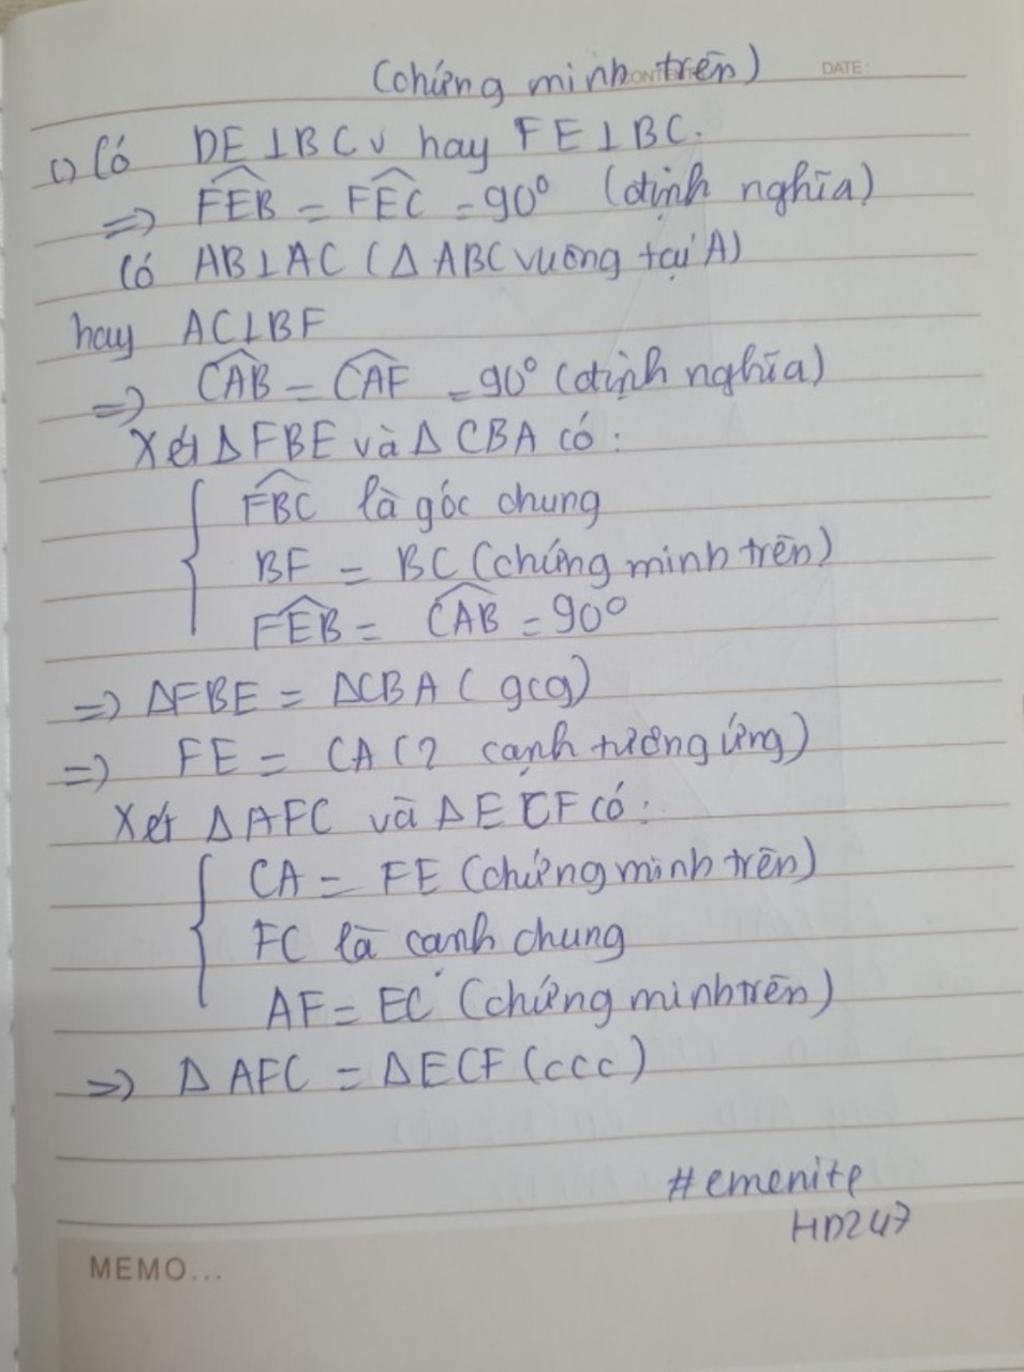 (chứng minh trên) DATE:
c) Có DE⊥BC hay FE⊥BC.
=> FEB = FEC = 90° (định nghĩa)
Có AB⊥AC (Δ ABC vuông tại A)
hay AC⊥BF
=> CAB = CAF = 90° (định nghĩa)
Xét Δ FBE và Δ CBA có:
FBC là góc chung
BF = BC (chứng minh trên)
FEB = CAB = 90°
=> ΔFBE = ΔCBA (gcg)
=> FE = CA (2 cạnh tương ứng)
Xét Δ AFC và Δ ECF có:
CA = FE (chứng minh trên)
FC là cạnh chung
AF = EC (chứng minh trên)
=> Δ AFC = ΔECF (ccc)
#emenite
HD247
MEMO...